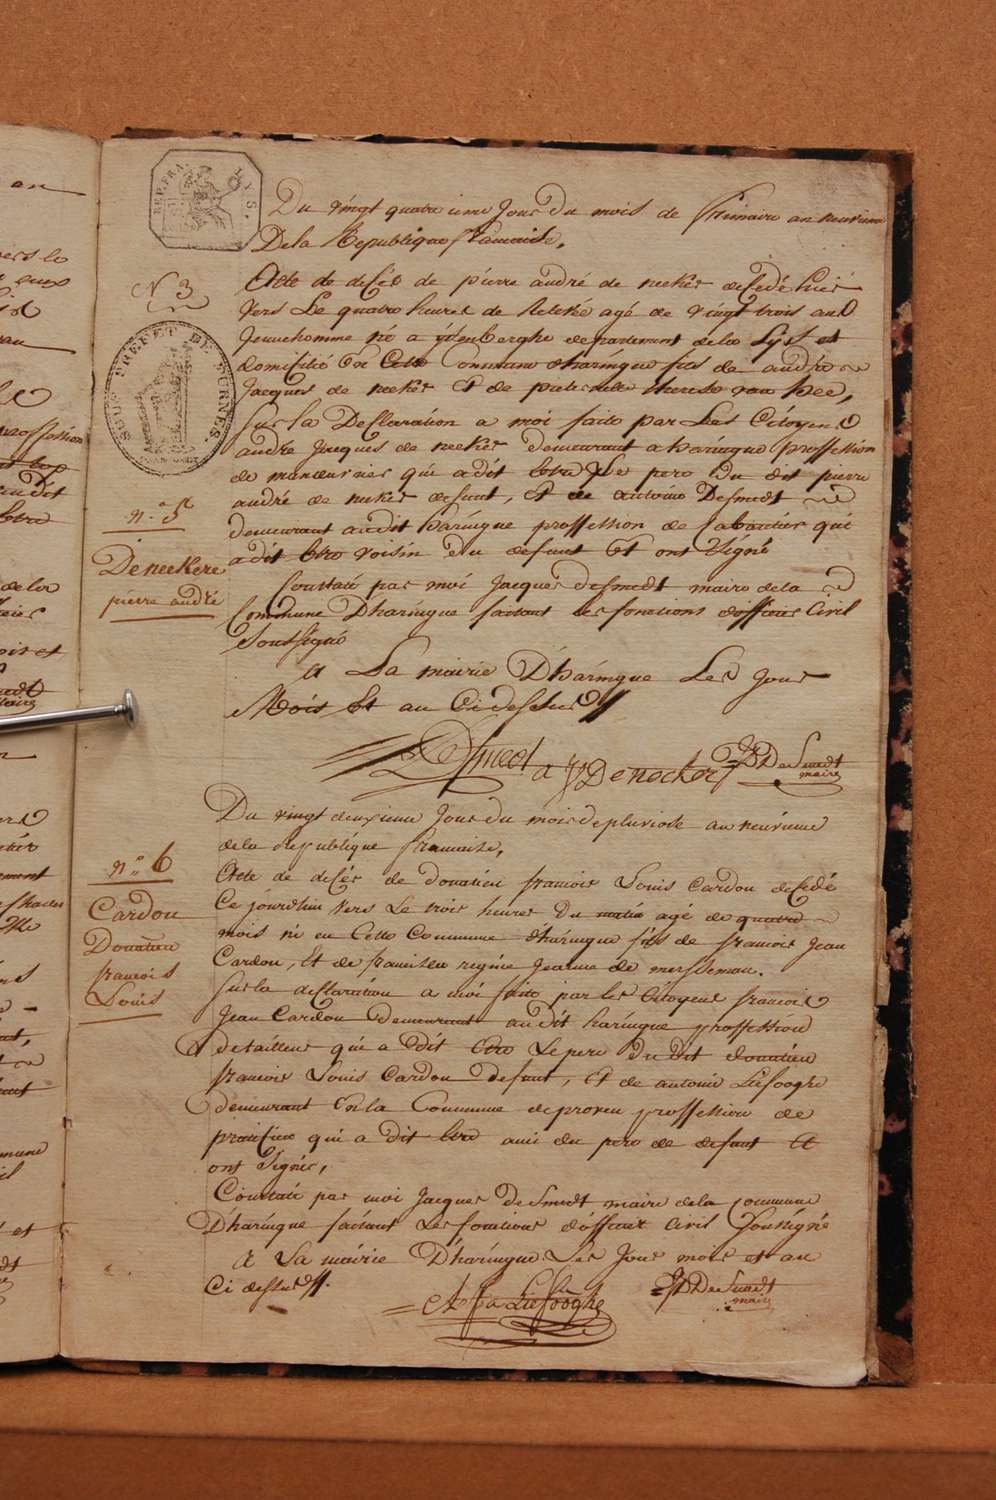 REP. FRA.
Du vingt quatrieme Jour du mois de frimaire an neuvieme
De la Republique francaise,
N 3
SOUS PREFET DE FURNES.
Acte de deCés de pierre andré de neeker deCedé hier
vers Le quatre heures de Relevée agé de vingt trois ans
Jeunehomme né a ysenberghe departement de la Lys et
domiCilié En Cette Commune dharingue fils de andré
Jacques de neeker Et de therese van hee,
Sur la DeClaration a moi faite par Les Citoyens
andré Jacques de neeker demeurant a haringue proffession
de manoeuvrier qui a dit Etre Le pere Du dit pierre
andré de neeker defunt, Et de antoine Desmedt
n.° 5
demeurant audit haringue proffession de Cabaretier qui
a dit Etre voisin du defunt Et ont Signé
Deneekere
pierre andré
Constaté par moi Jacques desmedt maire de la
Commune Dharingue faisant Les fonctions dofficier Civil
Soussigné
a La mairie Dharingue Les Jour
Mois Et an Ci dessus
Desmedt a J Denecker JB De Smedt
maire
Du vingt deuxieme Jour du mois de pluviose an neuvieme
de la Republique francaise,
n.° 6
Acte de deCés de donatien francois Louis Cardon deCedé
Ce jourdhui vers Le trois heures du matin agé de quatre
Cardon
Donatien
francois
Louis
mois né en Cette Commune dharingue fils de francois Jean
Cardon, Et de regine Jeanne de mersseman.
Sur la declaration a moi faite par les Citoyens francois
Jean Cardon demeurant audit haringue proffession
detailleur qui a dit Etre Le pere Du dit donatien
francois Louis Cardon defunt, Et de antoine Liefooghe
demeurant En la Commune de proven proffession de
qui a dit Etre ami du pere de defunt Et
ont Signés,
Constaté par moi Jacques De Smedt maire de la commune
Dharingue faisant Les fonctions dofficier Civil Soussigné
a La mairie Dharingue Les Jour mois et an
Ci dessus
Liefooghe JB De Smedt
maire